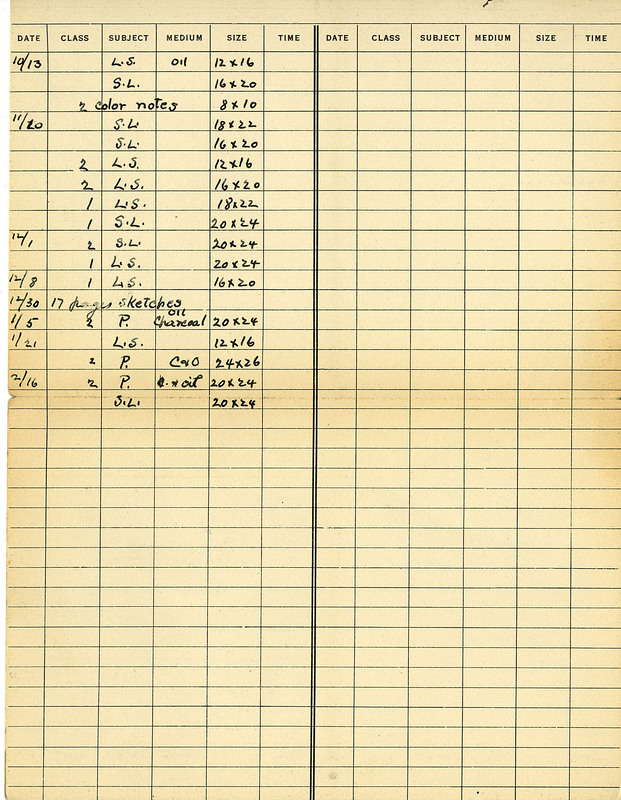 DATE CLASS SUBJECT MEDIUM SIZE TIME DATE CLASS SUBJECT MEDIUM SIZE TIME
10/13 L.S. oil 12x16
S.L. 16x20
2 color notes 8x10
11/20 S.L. 18x22
S.L. 16x20
2 L.S. 12x16
2 L.S. 16x20
1 L.S. 18x22
1 S.L. 20x24
12/1 2 S.L. 20x24
1 L.S. 20x24
12/8 1 L.S. 16x20
12/30 17 pages sketches
1/5 2 P. oil Charcoal 20x24
1/21 L.S. 12x16
2 P. C&O 24x26
2/16 2 P. C. & oil 20x24
S.L. 20x24